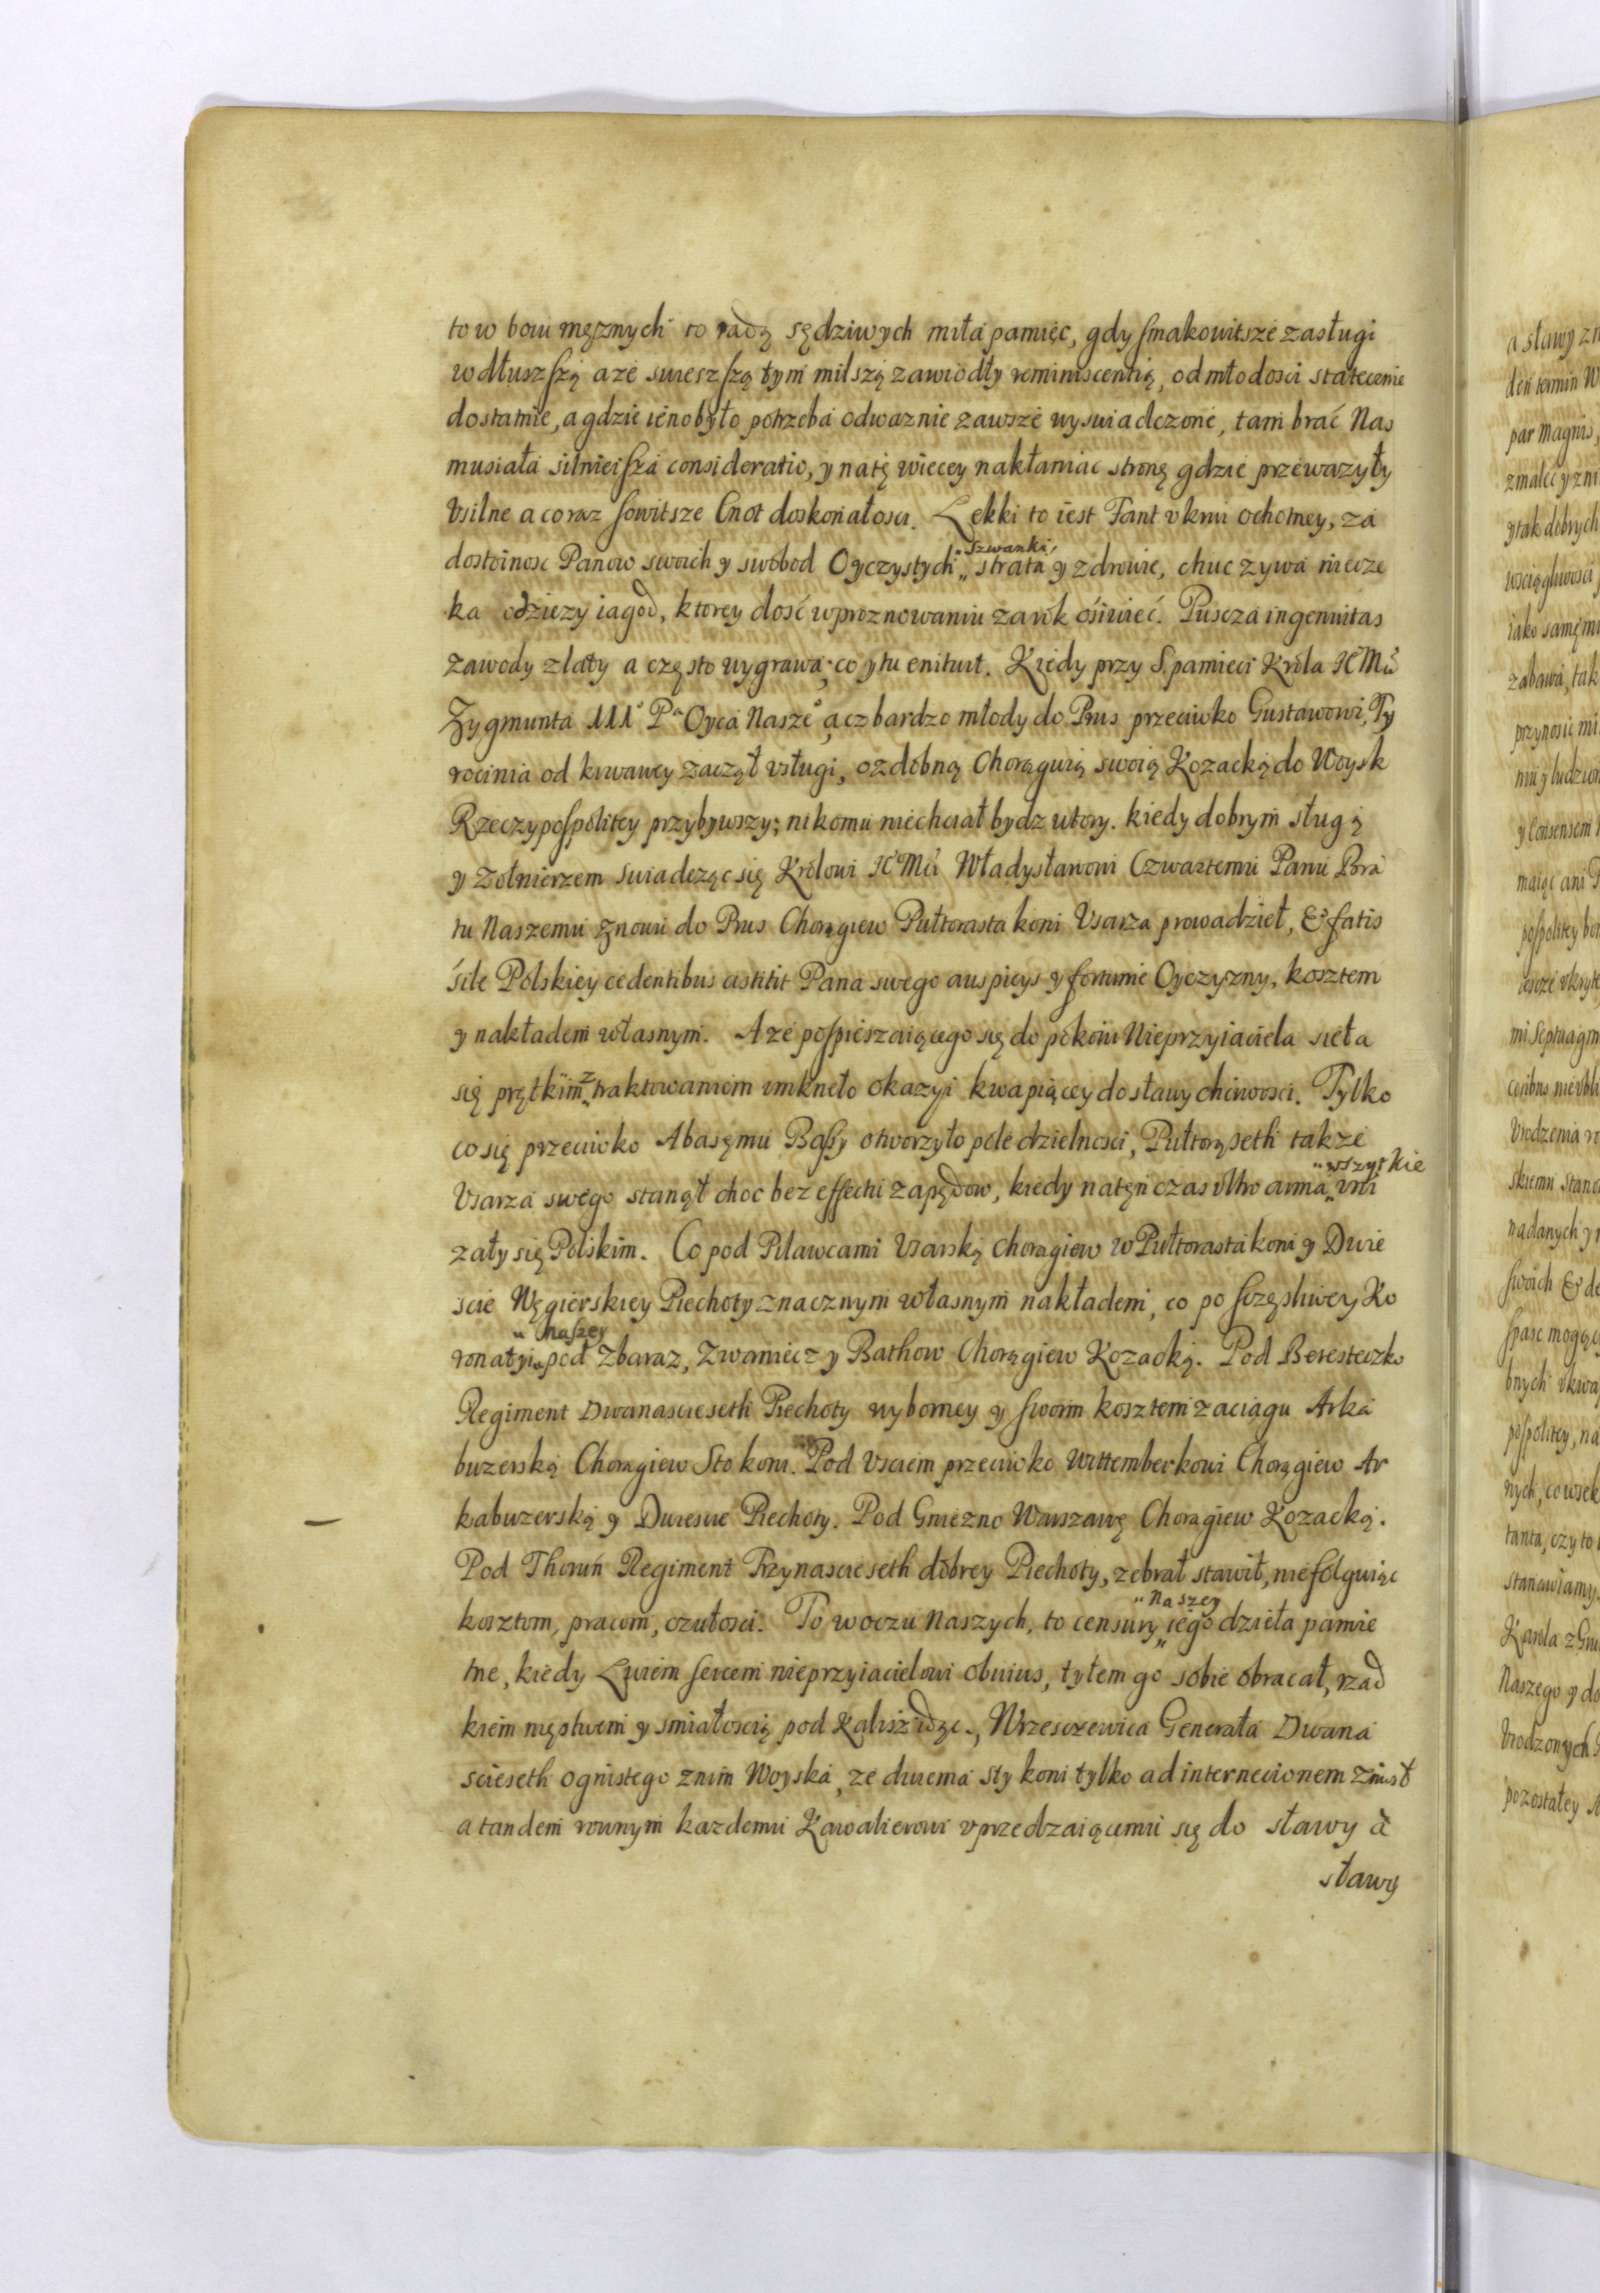 to w boiu mężnych to radą sędziwych miła pamięc, gdy smakowitsze zasługi
w dłuszszą a ze swieszszą tym milszą zawiodły reminiscentią, od młodosci statecznie
dostatnie, a gdzie ieno było potrzeba odwaznie zawsze wyswiadczone, tam brać Nas
musiała silnieisza consideratio, y natę wiecey nakłaniac stronę gdzie przewazyły
Vsilne a coraz sowitsze Cnot doskonałosci. Lekki to iest Fant v krwi ochotney, za
dostoinosc Panow swoich y swobod Oyczystych „szwanki, strata y zdrowie, chuc zywa niecze
ka odziezy iagod, ktorey dość w proznowaniu za rok ośiwieć. Puscza ingenuitas
zawody z laty a często wygrawa; co y tu enituit. Kiedy przy S. pamieci Króla JCMci
Zygmunta III° Pa Oyca Naszeo, acz bardzo młody do Prus przeciwko Gustawowi, Ty
rocinia od krwawey zaczął vsługi, ozdobną Chorągwią swoią Kozacką do Woysk
Rzeczypospolitey przybywszy; nikomu niechciał bydz wtory. kiedy dobrym sługą
y Zołnierzem swiadcząc się Królowi JCMci Władysławowi Czwartemu Panu Bra
tu Naszemu znowu do Prus Chorągiew Pułtorasta koni Vsarza prowadzieł, & fatis
śile Polskiey cedentibus astitit Pana swego auspicys y fortunie Oyczyzny, kosztem
y nakładem własnym. A ze pospieszaiącego się do pokoiu Nieprzyiaciela sieła
się prętkim z traktowaniem vmkneło okazyi kwapiącey do sławy chciwosci. Tylko
co się przeciwko Abasęmu Bassy otworzyło pole dzielnosci, Pułtorąseth takze
Vsarza swego stanął choc bez effectu zapędow, kiedy natęn czas vltro arma „wszytkie vni
zały się Polskim. Co pod Pilawcami Vsarską chorągiew w Pułtorasta koni y Dwie
scie Węgierskiey Piechoty znacznym własnym nakładem, co po sczęsliwey Ko
ronatyi „Naszey pod Zbaraz, Zwaniecz y Bathow Chorągiew Kozacką. Pod Beresteczko
Regiment Dwanascieseth Piechoty wyborney y swoim kosztem zaciągu Arka
buzerską Chorągiew Sto koni. Pod Vsciem przeciwko Wittemberkowi Chorągiew Ar
kabuzerską y Dwiescie Piechoty. Pod Gniezno Warszawę Chorągiew Kozacką.
Pod Thoruń Regiment Trzynascieseth dobrey Piechoty, zebrał stawił, niefolguiąc
kosztom, pracom, czułosci. To w oczu Naszych, to censury „Naszey iego dzieła pamie
tne, kiedy Lwiem sercem nieprzyiacielowi obuius, tyłem go sobie obracał, rzad
kiem męstwem y smiałoscią pod Kalisz idąc, Wrzesczewica Generała Dwana
scieseth ognistego z nim Woyska, ze dwiema sty koni tylko ad internecionem zniosł
a tandem rownym kazdemu Kawalierowi vprzedzaiącemu się do sławy a
sławy